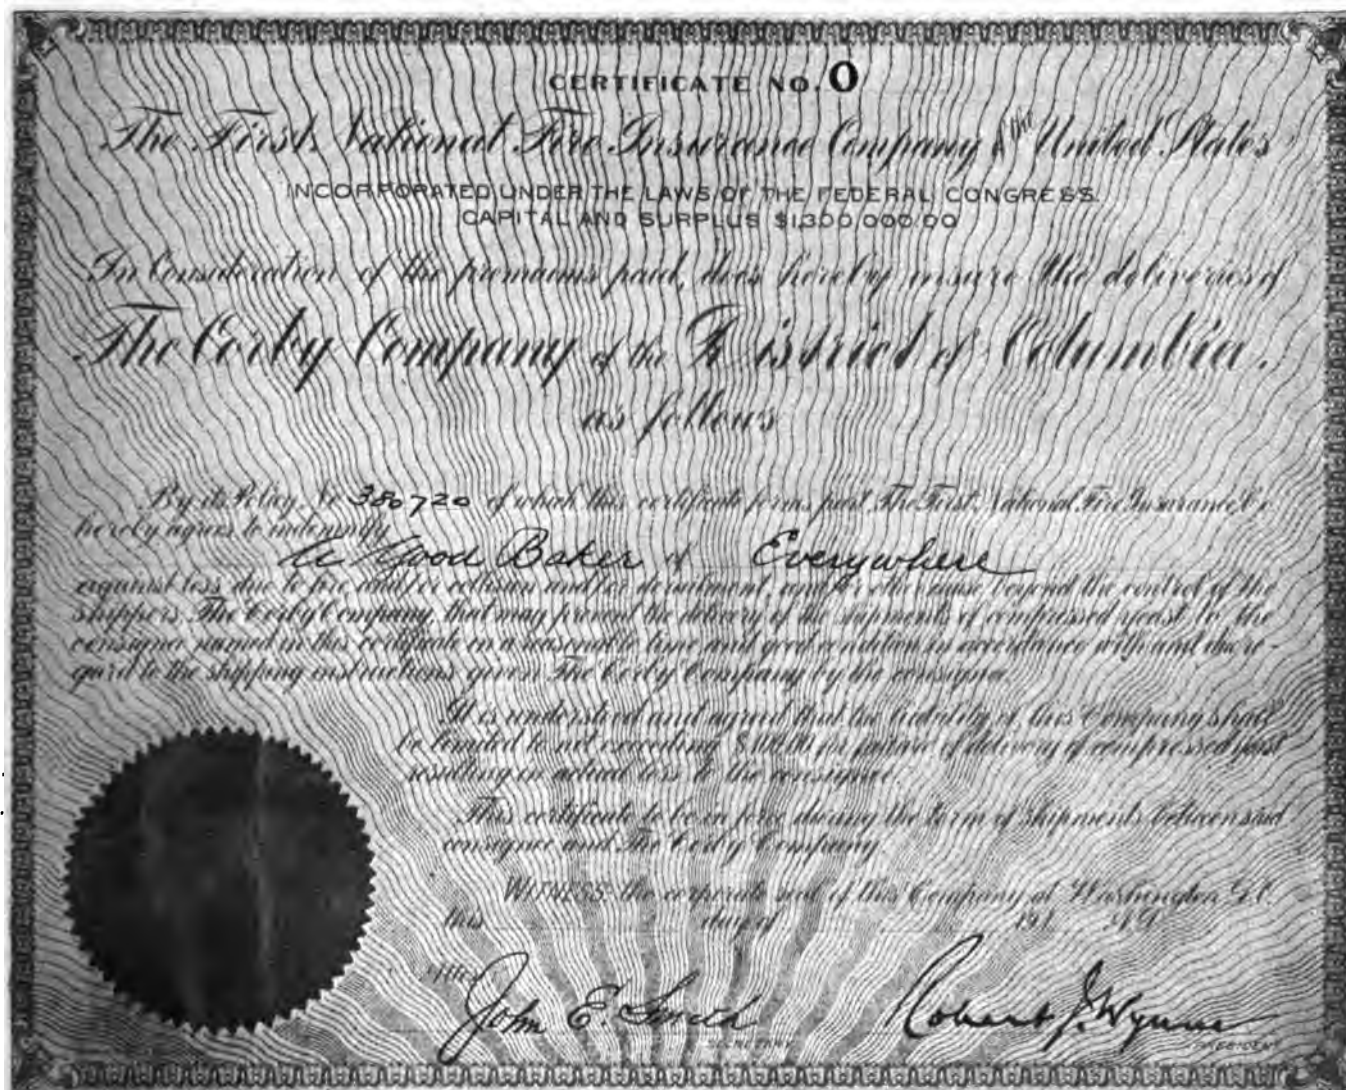 CERTIFICATE NO. 0
The First National Fire Insurance Company of the United States
INCORPORATED UNDER THE LAWS OF THE FEDERAL CONGRESS.
CAPITAL AND SURPLUS $1,300,000.00
In Consideration of the premiums paid, does hereby insure the deliveries of
The Corby Company of the District of Columbia.
as follows
By its Policy No 380720 of which this certificate forms part, The First National Fire Insurance Co
hereby agrees to indemnify
A Good Baker of Everywhere
against loss due to fire and/or collision and/or derailment and/or other cause beyond the control of the
shippers, The Corby Company, that may prevent the delivery of the shipments of compressed yeast to the
consignee named in this certificate in a reasonable time and good condition in accordance with and due re-
gard to the shipping instructions given The Corby Company by the consignee.
It is understood and agreed that the liability of this Company shall
be limited to not exceeding in failure of delivery of compressed yeast
resulting in actual loss to the consignee.
This certificate to be in force during the term of shipments between said
consignee and The Corby Company.
WITNESS the corporate seal of this Company at Washington D.C.
this day of 191
Attest
John E. Smith Robert J. Wynne
SECRETARY PRESIDENT